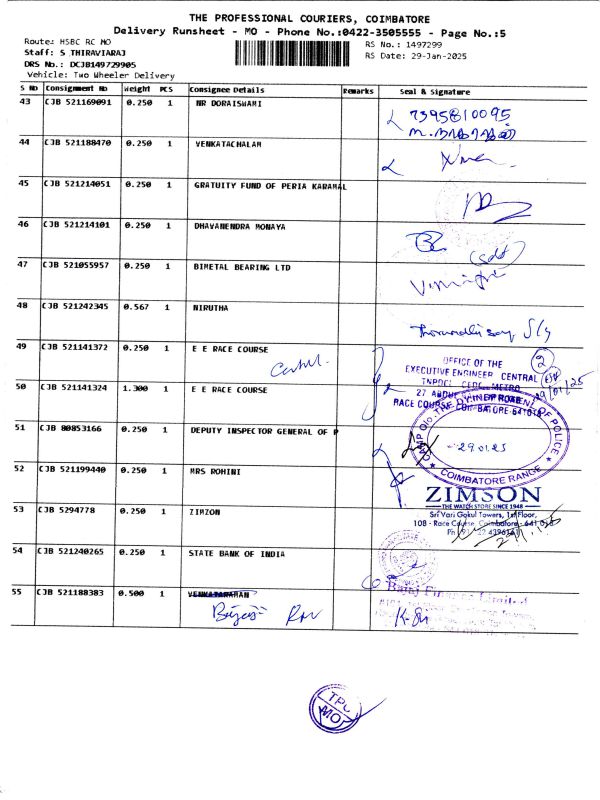 THE PROFESSIONAL COURIERS, COIMBATORE
Delivery Runsheet - MO - Phone No.:0422-3505555 - Page No.:5
Route: HSBC RC MO
RS No.: 1497299
Staff: S THIRAVIARAJ
RS Date: 29-Jan-2025
DRS No.: DCJB149729905
Vehicle: Two Wheeler Delivery
S No Consignment No Weight PCS Consignee Details Remarks Seal & Signature
43 CJB 521169091 0.250 1 MR DORAISWAMI
7395810095
44 CJB 521188470 0.250 1 VENKATACHALAM
45 CJB 521214051 0.250 1 GRATUITY FUND OF PERIA KARAMAL
46 CJB 521214101 0.250 1 DHAVANENDRA MONAYA
47 CJB 521055957 0.250 1 BIMETAL BEARING LTD
48 CJB 521242345 0.567 1 NIRUTHA
49 CJB 521141372 0.250 1 E E RACE COURSE
2
OFFICE OF THE
EXECUTIVE ENGINEER CENTRAL
50 CJB 521141324 1.300 1 E E RACE COURSE
RACE COURSE COIMBATORE 641018
51 CJB 80853166 0.250 1 DEPUTY INSPECTOR GENERAL OF P
29.01.25
COIMBATORE RANGE
52 CJB 521199440 0.250 1 MRS ROHINI
ZIMSON
THE WATCH STORE SINCE 1948
53 CJB 5294778 0.250 1 ZIMZON
Sri Vari Gokul Towers, 1st Floor,
108 - Race Course, Coimbatore - 641 018
54 CJB 521240265 0.250 1 STATE BANK OF INDIA
Bajaj Finance Limited
55 CJB 521188383 0.500 1 VENKATARAMAN
TPC
MO